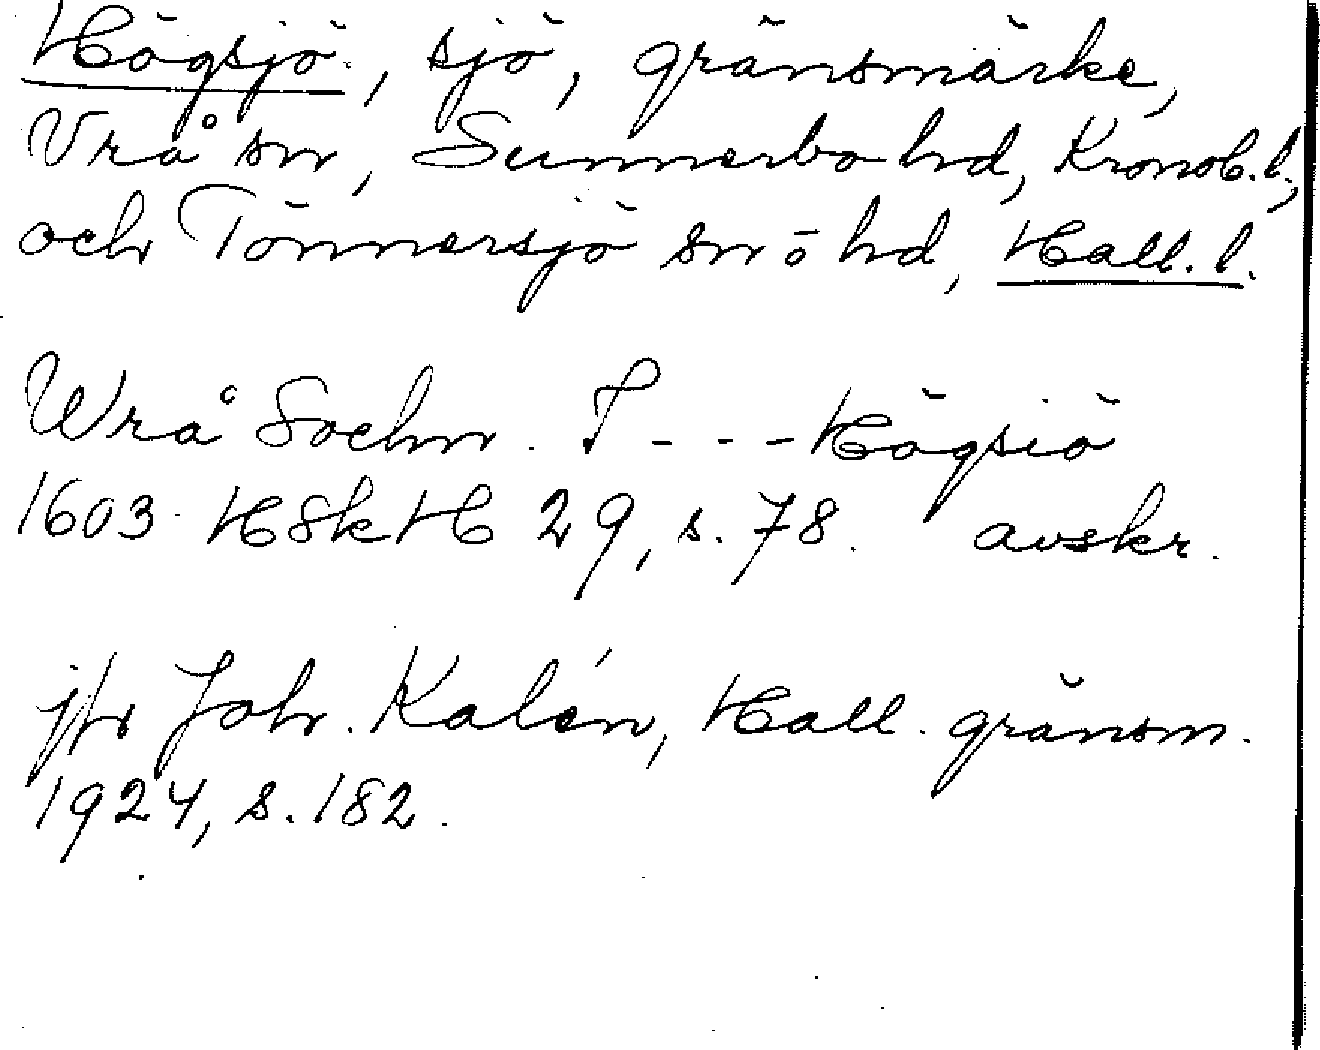 Högsjö, sjö, gränsmärke,
Vrå sn, Sunnerbo hd, Kronob. l.,
och Tönnersjö sn ö hd, Hall. l.
Wrå Sochn. I - - - Högsiö
1603 HSkH 29, s. 78. avskr.
jfr Joh. Kalén, Hall. gränsm.
1924, s. 182.